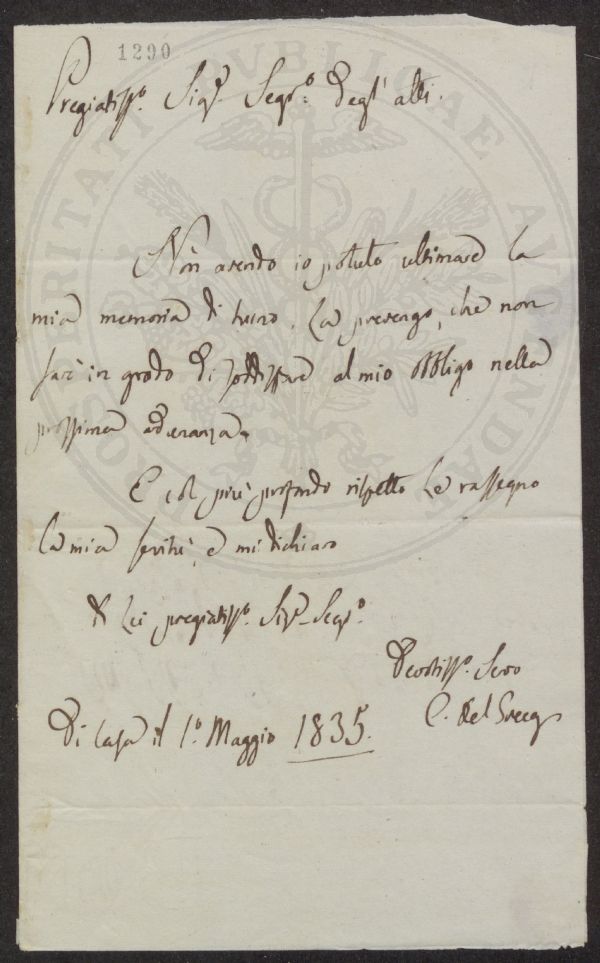 1290
Pregiatissº. Sigr. Segrº. degl' atti.
Non avendo io potuto ultimare la
mia memoria di turno, La prevengo, che non
sarò in grado di soddisfare al mio obbligo nella
prossima adunanza.
E col più profondo rispetto Le rassegno
la mia servitù, e mi dichiaro
di Lei pregiatissº. Sigr. Segrº.
Devotissº. Servo
C. Del Greco
Di Casa il 1º. Maggio 1835.
PROSPERITATI PVBLICAE AVGENDAE